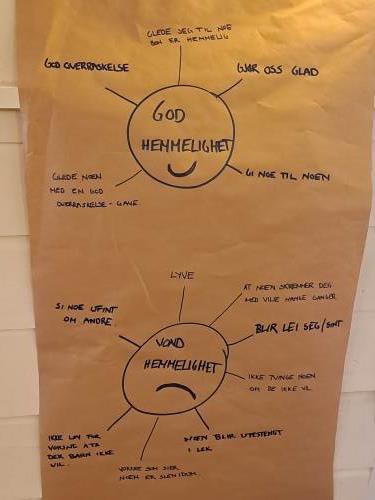 GLEDE SEG TIL NOE
SOM ER HEMMELIG
GOD OVERRASKELSE
GJØR OSS GLAD
GOD
HEMMELIGHET
GLEDE NOEN
MED EN GOD
OVERRASKELSE - GAVE
GI NOE TIL NOEN
LYVE
AT NOEN SKREMMER DEG
MED VILJE MANGE GANGER
SI NOE UFINT
OM ANDRE
BLIR LEI SEG/SINT
VOND
HEMMELIGHET
IKKE TVINGE NOEN
OM DE IKKE VIL
IKKE LOV FOR
VOKSNE ATA
DER BARN IKKE
VIL.
NOEN BLIR UTESTENGT
I LEK
VOKSNE SOM SIER
NOEN ER SLEM/DUM.